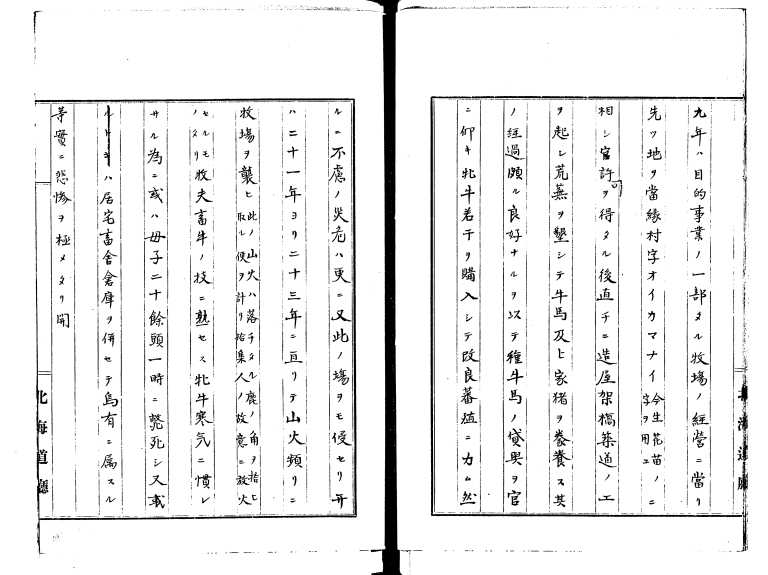 九年ハ目的事業ノ一部タル牧場ノ経営ニ當リ
先ツ地ヲ當縁村字オイカマナイ今生花苗ノ二字ヲ用ユ
相シ官許ヲ得タル後直チニ造屋架橋築道ノ工
ヲ起シ荒蕪ヲ墾シテ牛馬及ヒ家猪ヲ養ス其
ノ経過頗ル良好ナルヲ以テ種牛馬ノ貸與ヲ官
ニ仰キ牝牛若干ヲ購入シテ改良蕃殖ニ力ム然
北海道廳
ルニ不慮ノ災危ハ更ニ又此ノ場ヲモ侵セリ
ハ二十一年ヨリ二十三年ニ亘リテ山火頻リニ
牧場ヲ襲ヒ此ノ山火ハ落チタル鹿ノ角ヲ拾ヒ取ル便ヲ計リ拾集人ノ故意ニ放火
セルモノタリ牧夫畜牛ノ技ニ熟セス牝牛寒気ニ慣レ
サル為ニ或ハ母子二十餘頭一時ニ斃死シ又或
ハ居宅畜舎倉庫ヲ併セテ烏有ニ属スル
等實ニ惨ヲ極メタリ開
北海道廳